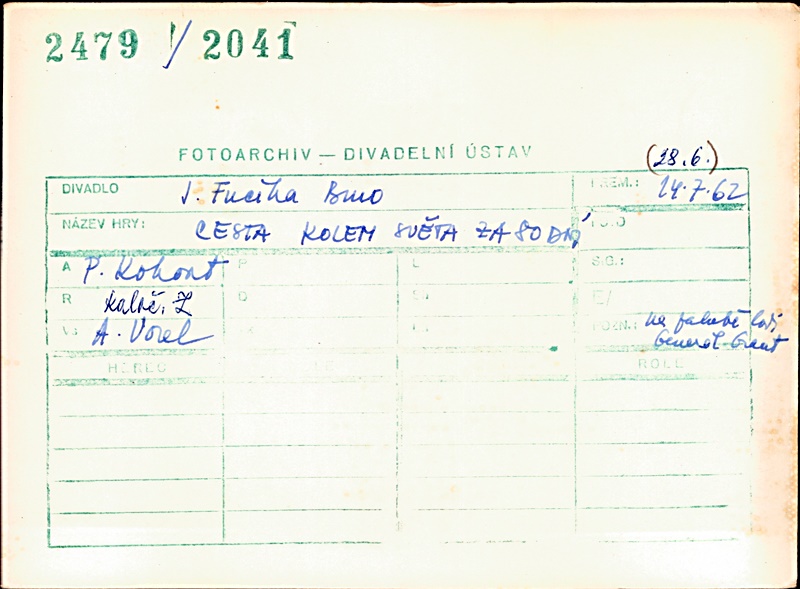 2479 / 2041
FOTOARCHIV — DIVADELNÍ ÚSTAV
(28.6.)
DIVADLO J. Fučíka Brno PREM.: 14.7.62
NÁZEV HRY: CESTA KOLEM SVĚTA ZA 80 DNÍ
A P. Kohout P L S.G.:
R Kaloč, Z
A. Vorel POZN.: na palubě lodi
General Grant
HEREC ROLE